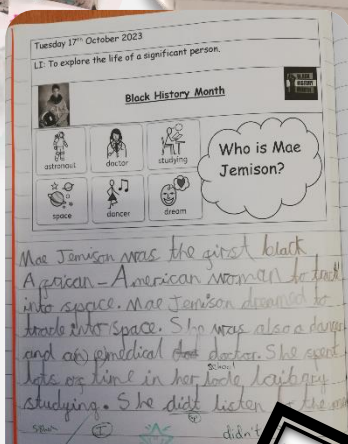 Tuesday 17th October 2023
LI: To explore the life of a significant person.
Black History Month
astronaut
doctor
studying
space
dancer
dream
Who is Mae
Jemison?
Mae Jemison was the girst black
Agrican-American woman to
into space. Mae Jemison dreamed to
into space. She was also a
and an medical doctor. She spent
school
lots og time in her laibary
studying. She didt listen
didn't